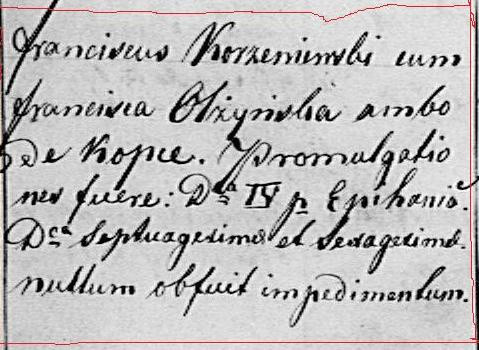 Franciscus Korzeniewski cum
Francisca Olżyńska ambo
de Kopce. Promulgatio
nes fuere: Dca IV p Epihaniã.
Dca Septuagesima et Sexagesima.
nullum obfuit impedimentum.